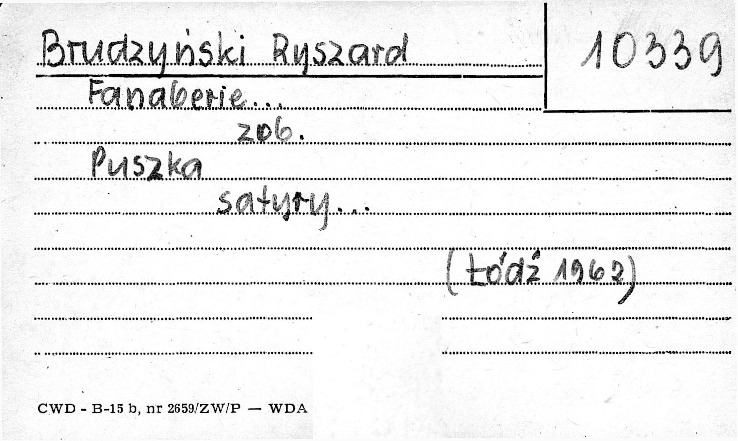 Brudzyński Ryszard
10339
Fanaberie...
zob.
Puszka
satyry...
(Łódź 1962)
CWD - B-15 b, nr 2659/ZW/P — WDA